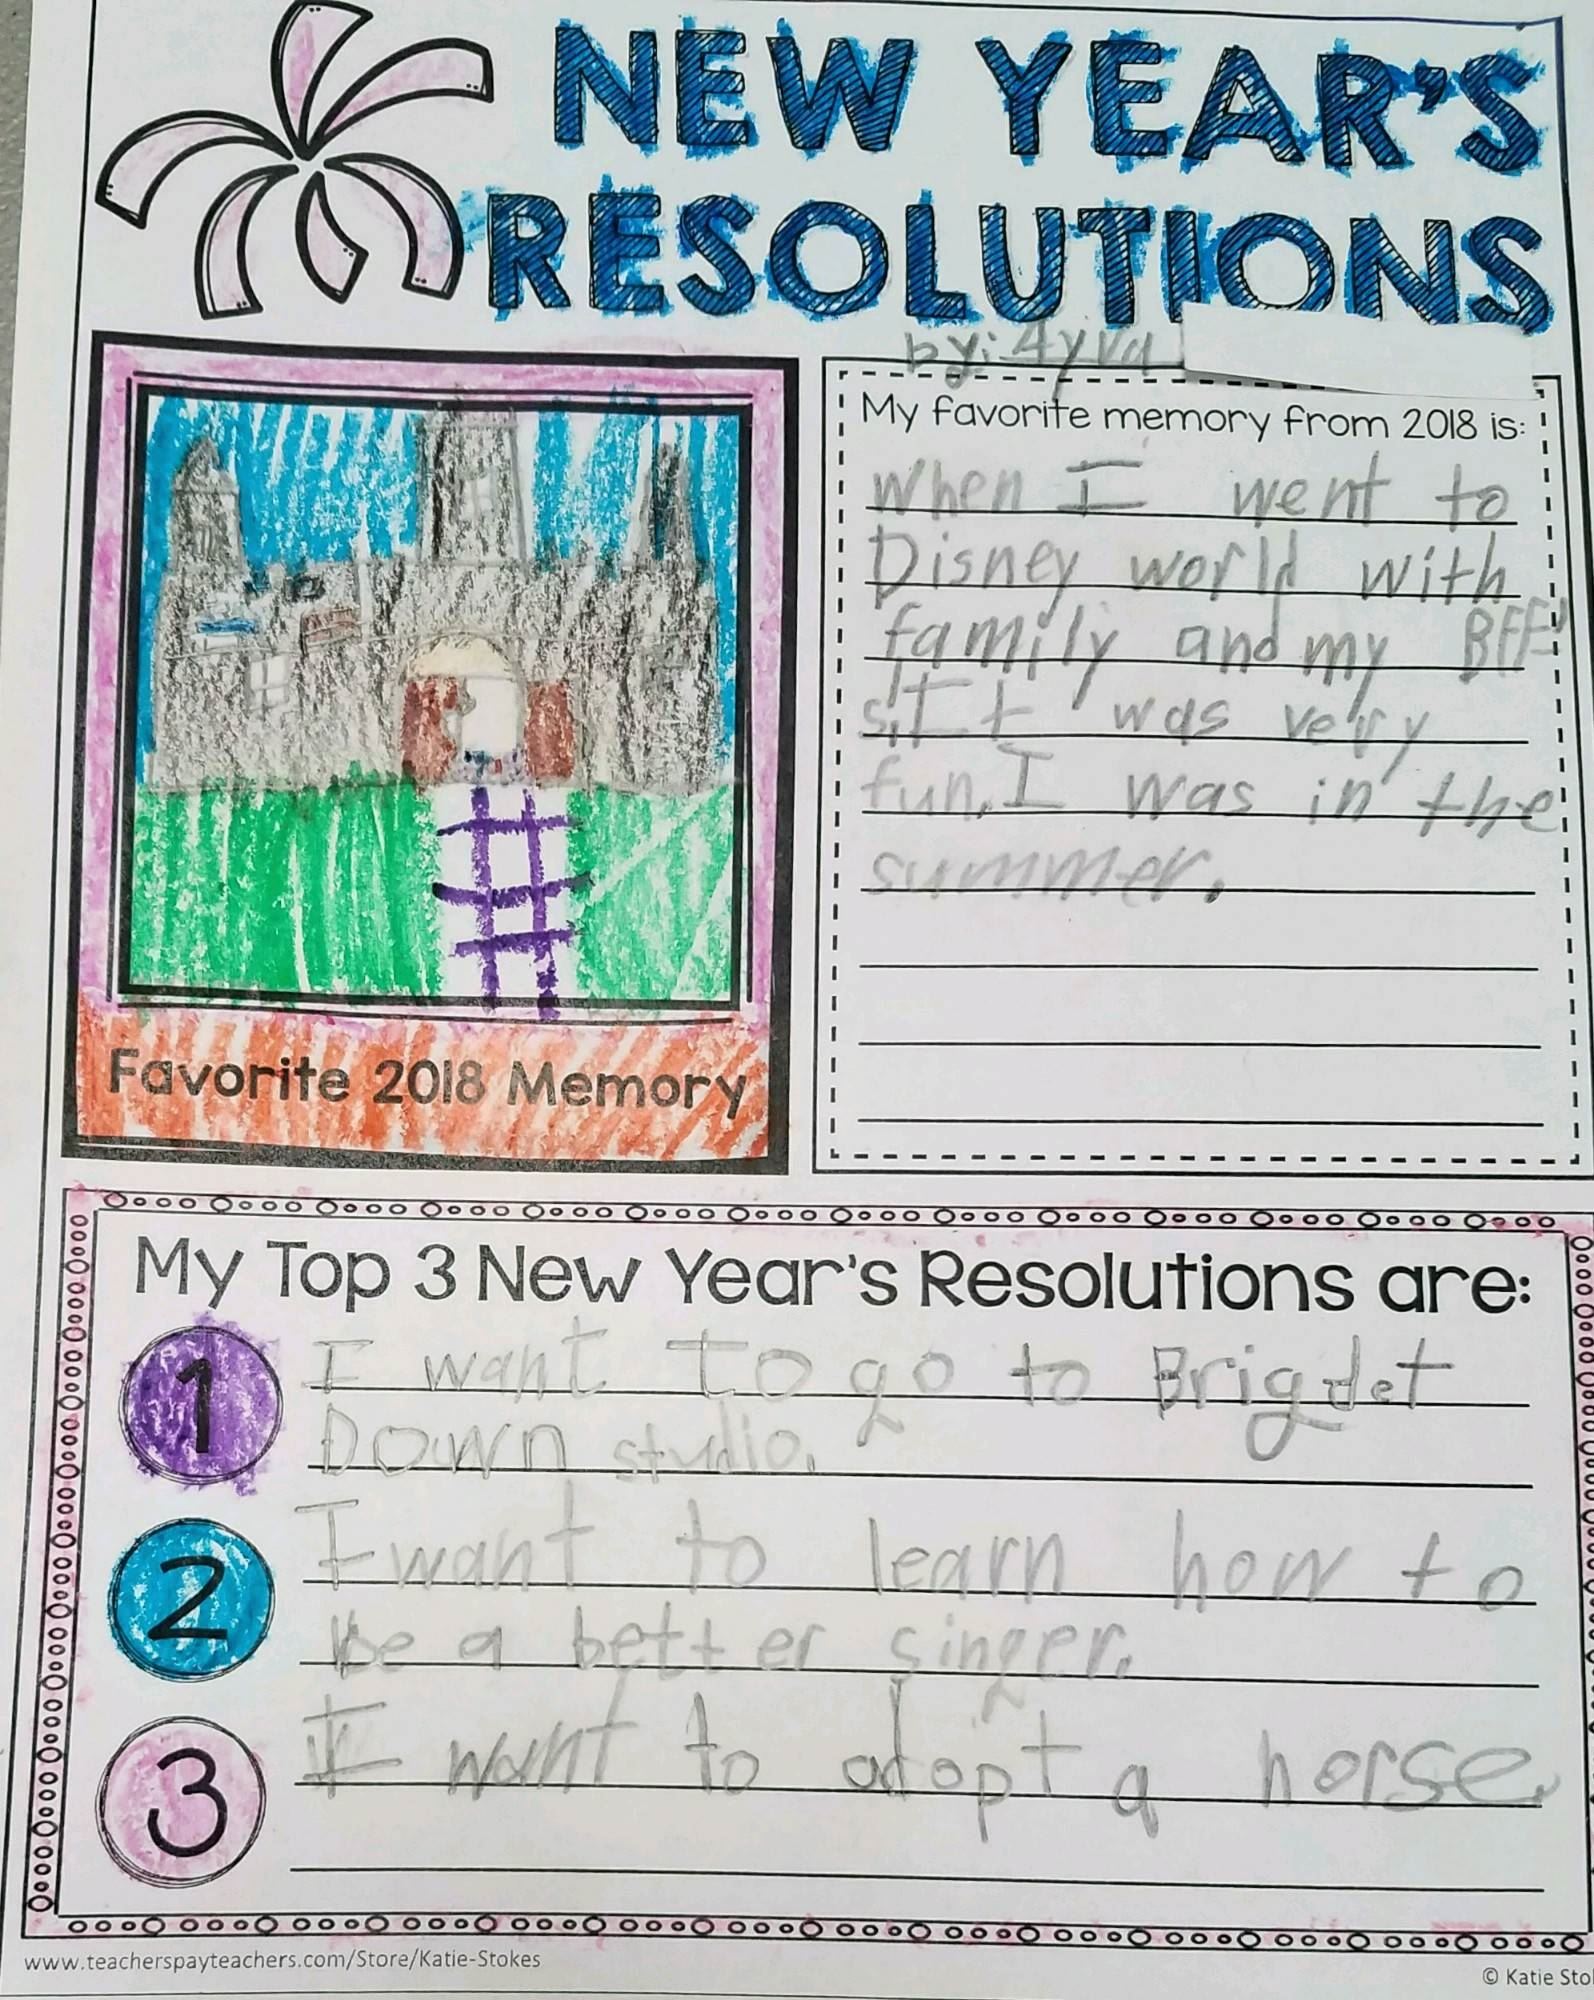 NEW YEAR'S
RESOLUTIONS
by: Ayva
My favorite memory from 2018 is:
When I went to
Disney world with
family and my BFF
s, It was very
fun, I was in the
summer.
Favorite 2018 Memory
My Top 3 New Year's Resolutions are:
1 I want to go to Brigdet
Down studio.
2 I want to learn how to
be a better singer.
3 I want to adopt a horse.
www.teacherspayteachers.com/Store/Katie-Stokes
© Katie Sto